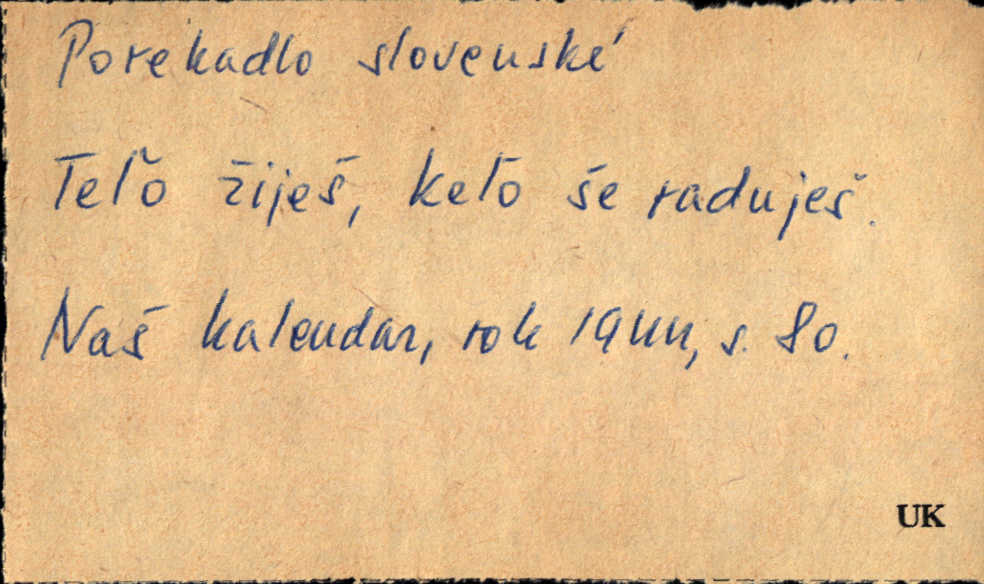 Porekadlo slovenské
Teľo žiješ, keľo še raduješ.
Naš kalendar, rok 1944, s. 80.
UK